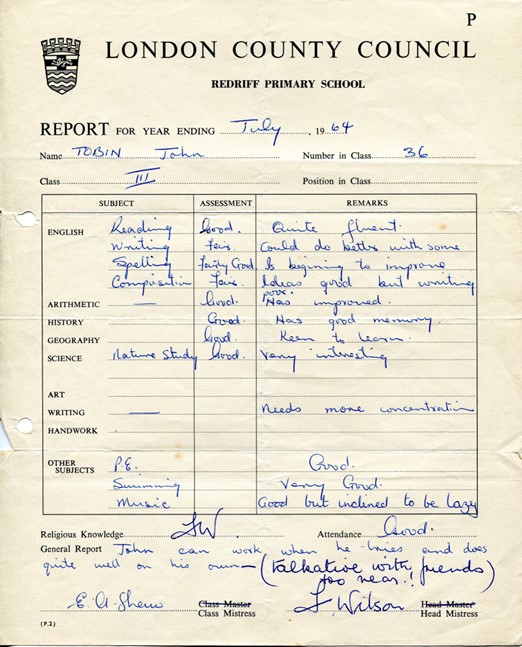 P
LONDON COUNTY COUNCIL
REDRIFF PRIMARY SCHOOL
REPORT FOR YEAR ENDING July, 1964
Name TOBIN John Number in Class 36
Class III Position in Class
SUBJECT ASSESSMENT REMARKS
ENGLISH Reading Good. Quite fluent.
Writing Fair. Could do better with some
Spelling Fairly Good. Is beginning to improve
Composition Fair. Ideas good but writing
poor.
ARITHMETIC — Good. Has improved.
HISTORY Good. Has good memory.
GEOGRAPHY Good. Keen to learn.
SCIENCE Nature Study Good. Very interesting
ART
WRITING — Needs more concentration
HANDWORK
OTHER SUBJECTS P.E. Good.
Swimming Very Good.
Music Good but inclined to be lazy
Religious Knowledge Attendance Good.
General Report John can work when he tries and does
quite well on his own — (talkative with friends
too near!)
E. A. Shew Class Master L Wilson Head Master
Class Mistress Head Mistress
(P.2)